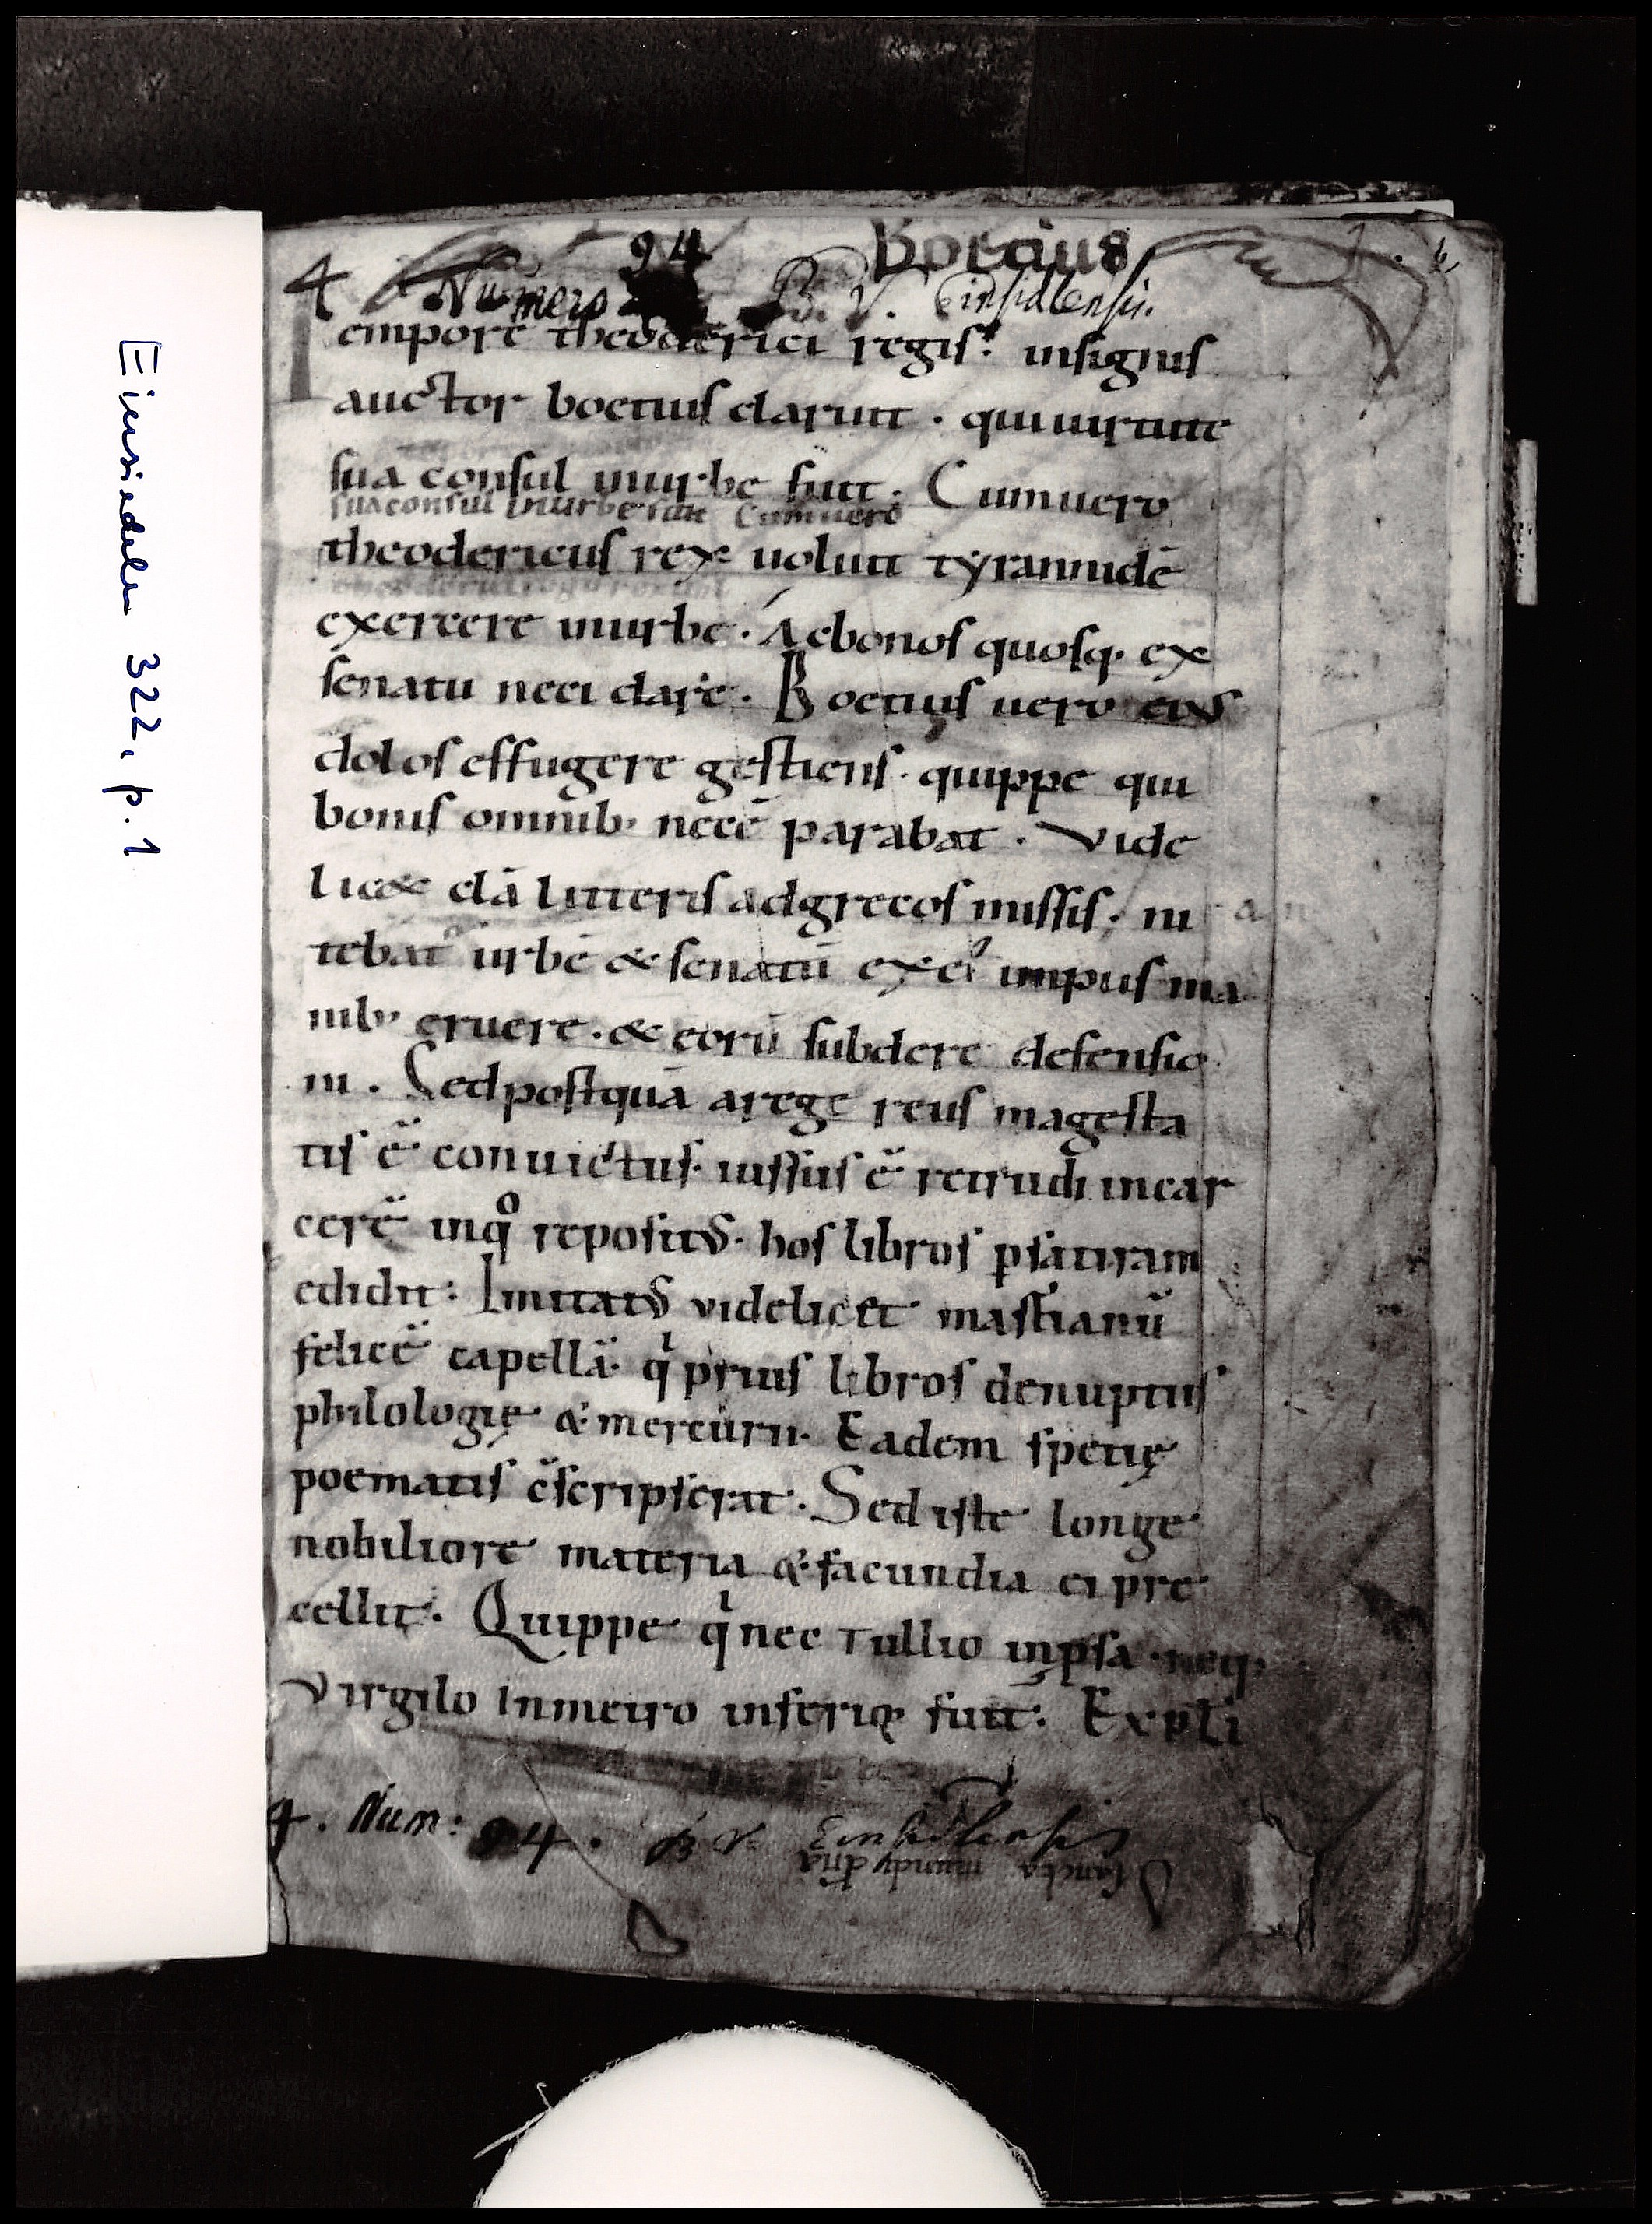 94 Boetius
4 Numero B. V. Einsidlensis.
Tempore theoderici regis. insignis
auctor boetius claruit . qui uirtute
sua consul inurbe fuit . Cumuero
suaconsul inurbe fuit Cumuero
theodericus rex uoluit tyrannidē
exercere inurbe . Acbonos quosq. ex
senatu neci dare . Boetius uero eiuſ
dolos effugere gestiens . quippe qui
bonis omnib; necē parabat . Vide
lic& clā litteris adgrecos missis . ni
tebat urbē & senatū ex ei' impiis ma
nib; eruere . & eorū subdere defensio
ni . Sedpostquā arege reus magesta
tis ē convictus . iussus ē retrudi incar
cerē inqͦ repositus . hos libros psatiram
edidit : Imitatus videlicet mastianū
felicē capellā . qͥ prius libros denuptiis
philologię & mercurii . Eadem spetię
poematis c̄scripserat . Sed iste longe
nobiliore materia & facundia ei pre
cellit . Quippe qͥ nec Tullio inpsa . neq.
Virgilo Inmetro inferior fuit . Expli
4 . Num: 94 . B V Einsidlensis
Einsiedeln 322, p. 1